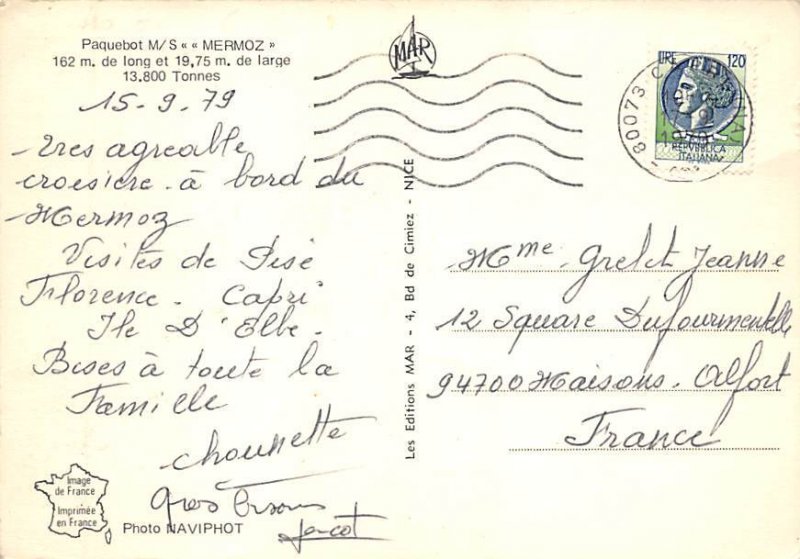 Paquebot M/S « « MERMOZ »
162 m. de long et 19,75 m. de large
13.800 Tonnes
MAR
LIRE 120
80073
REPVBBLICA
ITALIANA
15-9-79
Tres agreable
croisiere à bord du
Mermoz
Visites de Pise
Florence - Capri
Ile D'Elbe.
Bises à toute la
Famille
chounette
Gros Bisous
Les Editions MAR - 4, Bd de Cimiez - NICE
Mme Grelet Jeanne
12 Square Dufourmentelle
94700 Maisons-Alfort
France
Image
de France
Imprimée
en France
Photo NAVIPHOT